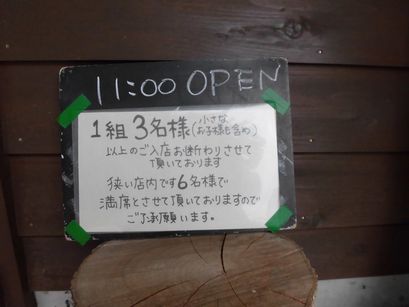 11:00 OPEN
1組 3名様(小さなお子様も含め)
以上のご入店お断わりさせて
頂いております
狭い店内です6名様で
満席とさせて頂いておりますので
ご了承願います。